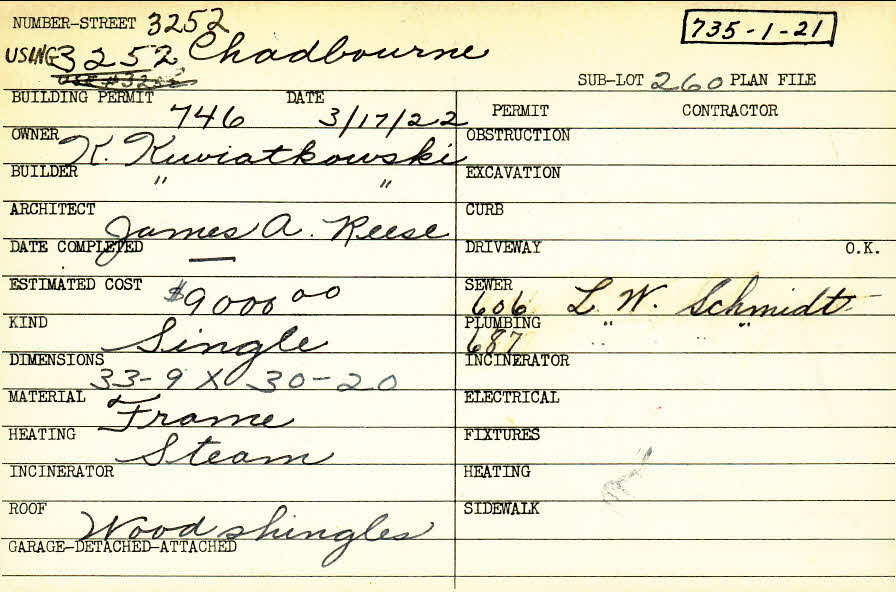 NUMBER-STREET 3252
735-1-21
USING 3252 Chadbourne
USE #
SUB-LOT 260 PLAN FILE
BUILDING PERMIT 746 DATE 3/17/22
PERMIT CONTRACTOR
OWNER K. Kuwiatkowski
OBSTRUCTION
BUILDER " "
EXCAVATION
ARCHITECT James A. Reese
CURB
DATE COMPLETED —
DRIVEWAY O.K.
ESTIMATED COST $9000 00
SEWER 606 L. W. Schmidt
KIND Single
PLUMBING 687 " " "
DIMENSIONS 33-9 X 30-20
INCINERATOR
MATERIAL Frame
ELECTRICAL
HEATING Steam
FIXTURES
INCINERATOR
HEATING
ROOF Wood shingles
SIDEWALK
GARAGE-DETACHED-ATTACHED